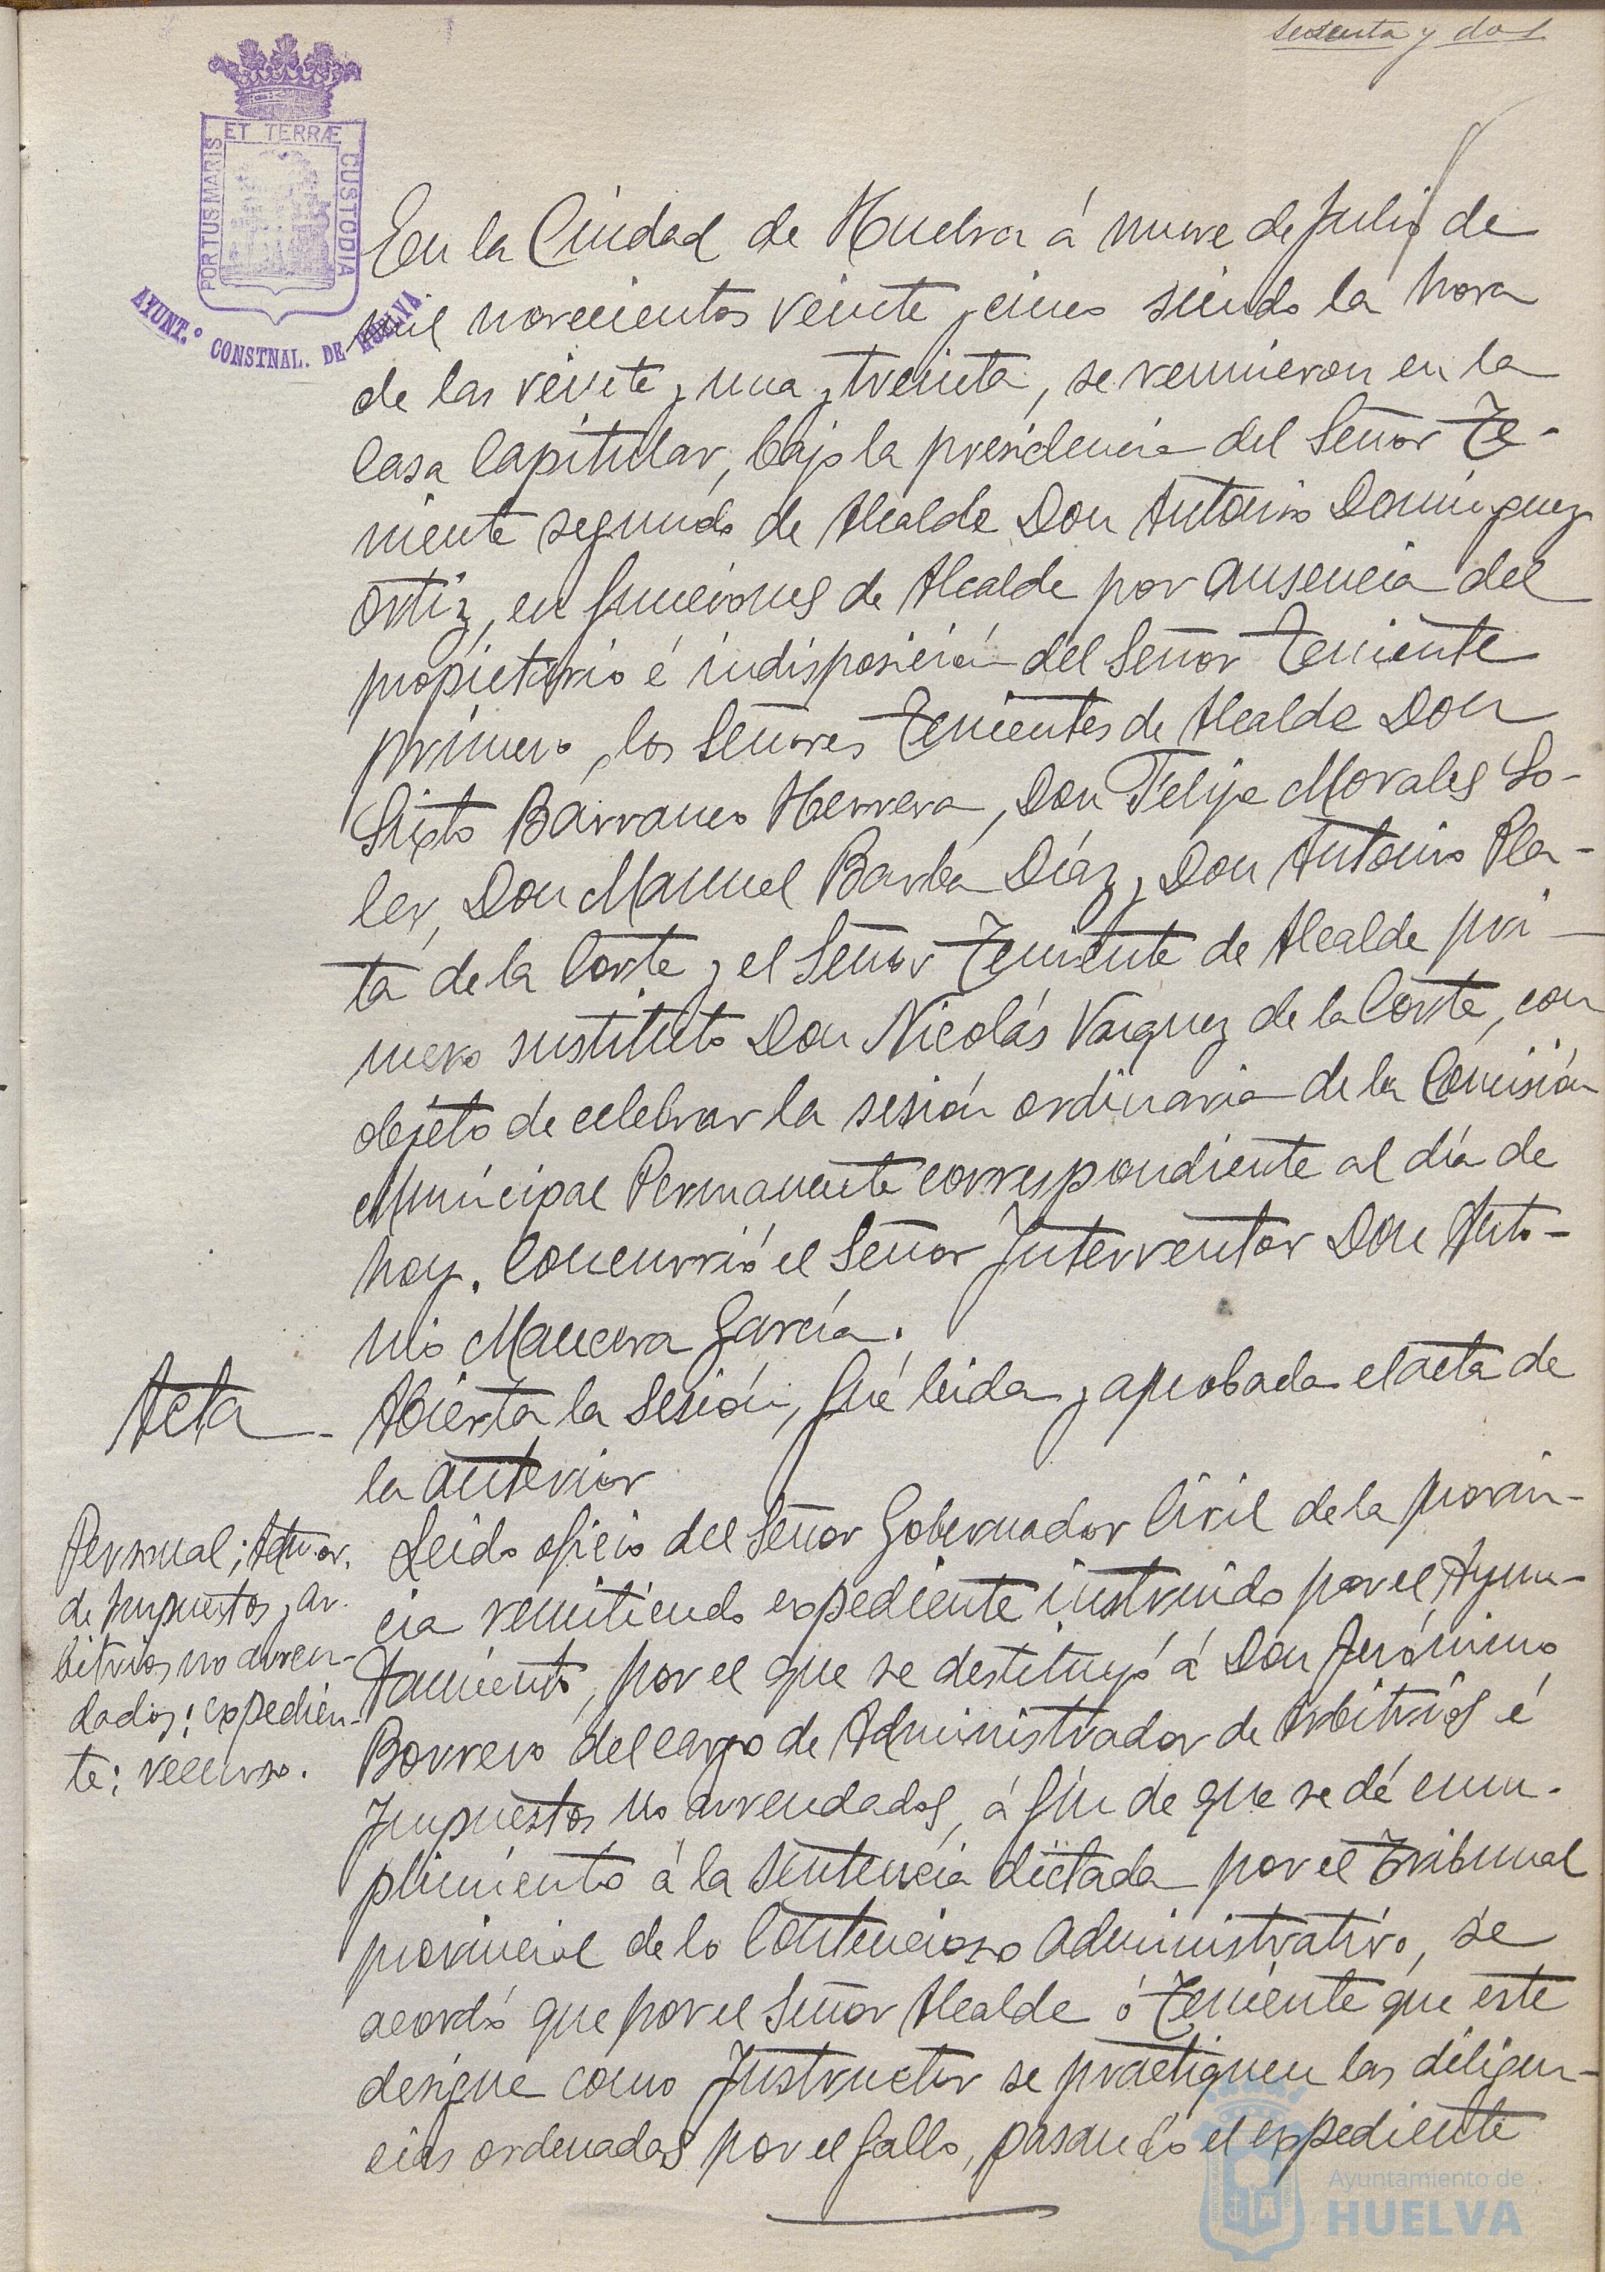 sesenta y dos
ET TERRÆ
PORTUS MARIS
CUSTODIA
AYUNT.º CONSTNAL. DE HUELVA
En la Ciudad de Huelva á nueve de Julio de
mil novecientos veinte y cinco siendo la hora
de las veinte y una y treinta, se reunieron en la
Casa Capitular, bajo la presidencia del Señor Te-
niente segundo de Alcalde Don Antonio Dominguez
Ortiz, en funciones de Alcalde por ausencia del
propietario é indisposición del Señor Teniente
primero, los Señores Tenientes de Alcalde Don
Sixto Barranco Herrera, Don Felipe Morales So-
ler, Don Manuel Barba Díaz y Don Antonio Pla-
ta de la Corte y el Señor Teniente de Alcalde pri-
mero sustituto Don Nicolás Vazquez de la Corte, con
objeto de celebrar la sesión ordinaria de la Comisión
Municipal Permanente correspondiente al día de
hoy. Concurrió el Señor Interventor Don Anto-
nio Mancera García.
Acta
Abierta la Sesión, fué leida y aprobada el acta de
la anterior
Personal; Admor.
de Impuestos y ar-
bitrios no arren-
dados: expedien-
te: recurso.
Leido oficio del Señor Gobernador Civil de la provin-
cia remitiendo expediente instruido por el Ayun-
tamiento, por el que se destituyó á Don Jerónimo
Borrero del cargo de Administrador de Arbitrios é
Impuestos no arrendados, á fin de que se dé cum-
plimiento á la sentencia dictada por el Tribunal
provincial de lo Contencioso Administrativo, se
acordó que por el Señor Alcalde ó Teniente que este
designe como Instructor se practiquen las diligen-
cias ordenadas por el fallo, pasando el expediente
Ayuntamiento de
HUELVA